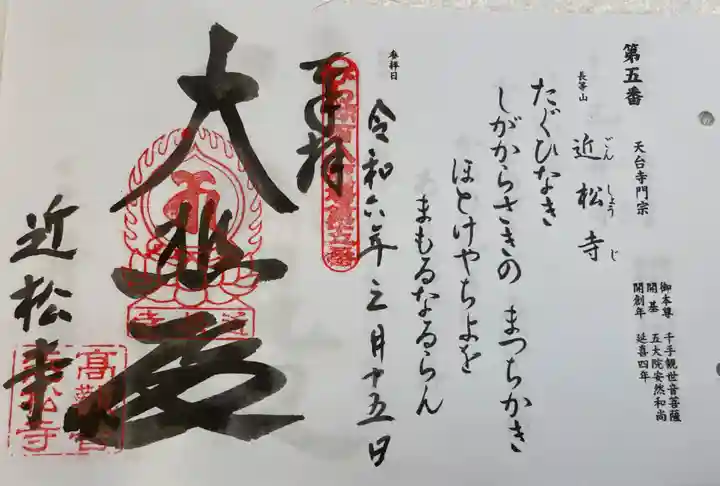 第五番
天台寺門宗
御本尊　千手観世音菩薩
開基　五大院安然和尚
開創年　延喜四年
長等山
近松寺
ごんしょうじ
たぐひなき
しがからさきの　まつちかき
ほとけやちよを
まもるなるらん
参拝日
令和六年三月十五日
奉拝
大悲殿
近松寺
近松寺
高観音
近松寺